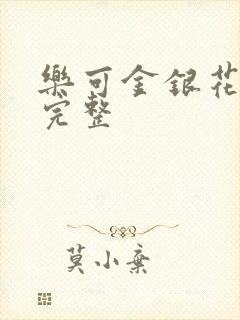 樂可金銀花
完整
莫小棄